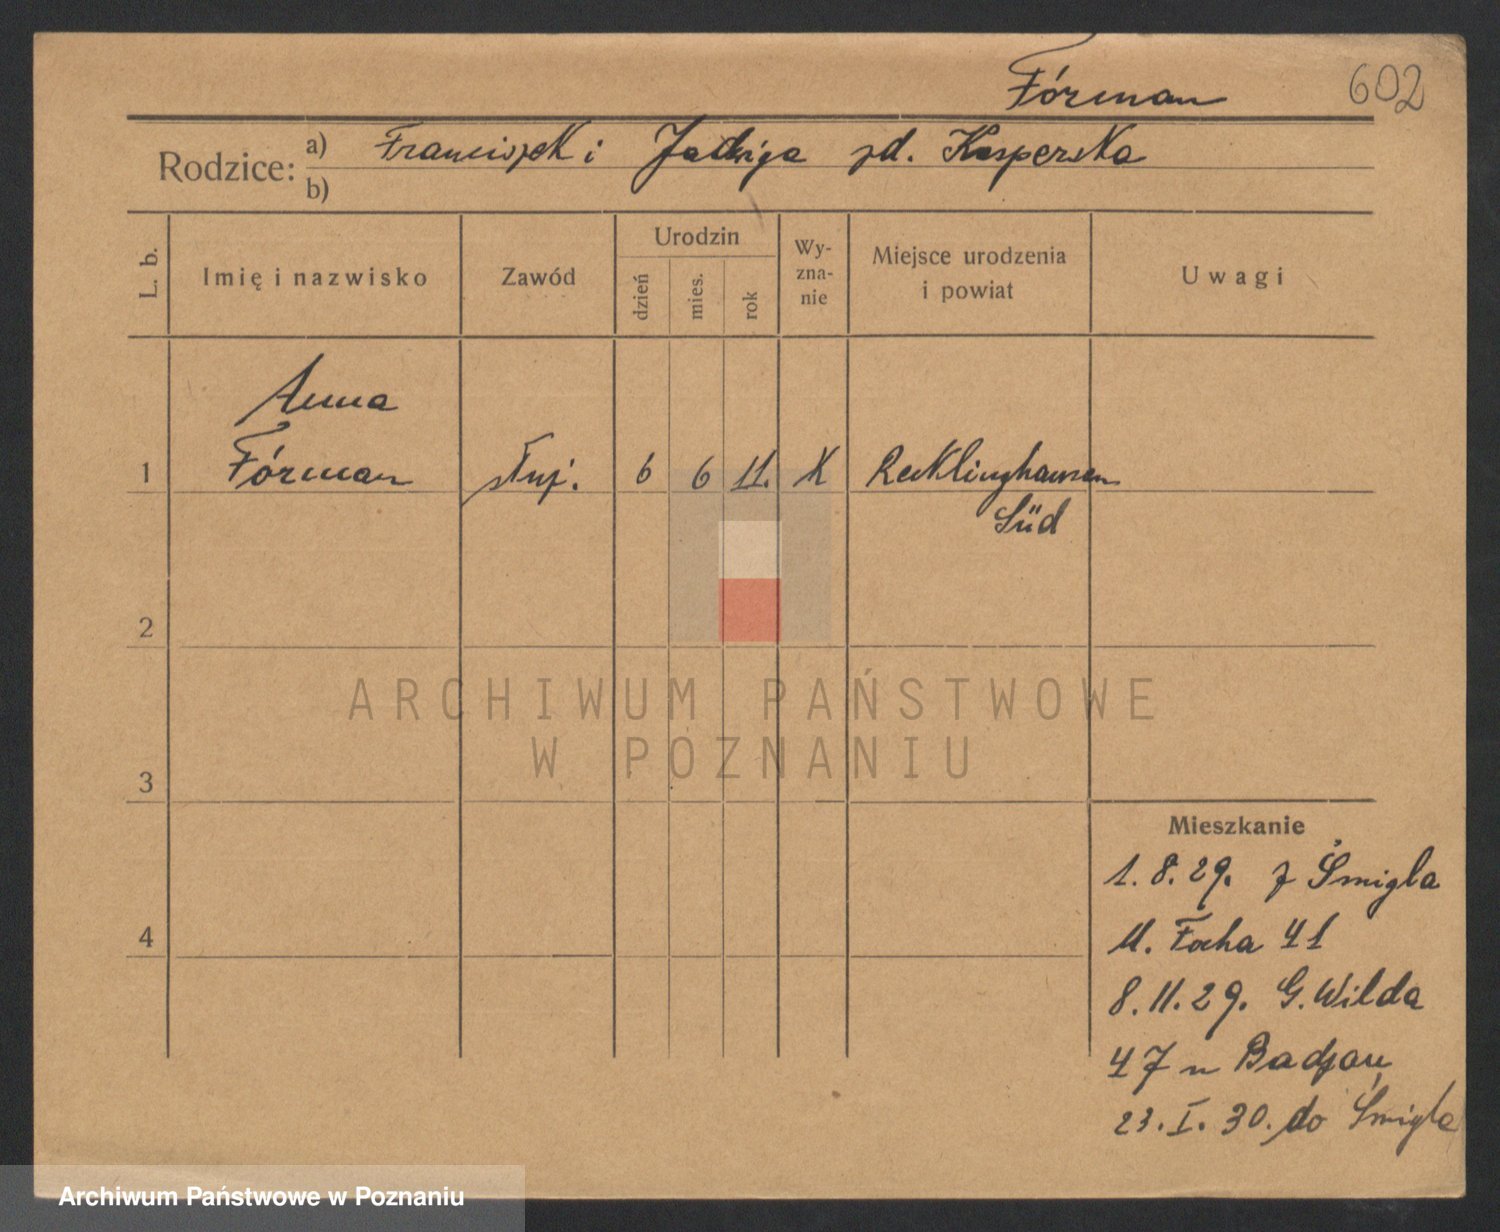 Fórman 602
Rodzice: a) Franciszek i Jadwiga zd. Kasperska
b)
L. b. Imię i nazwisko Zawód Urodzin dzień mies. rok Wy-zna-nie Miejsce urodzenia i powiat Uwagi
Anna
1 Fórman służ. 6 6 11. K Recklinghausen
Süd
2
ARCHIWUM PAŃSTWOWE
W POZNANIU
3
Mieszkanie
1. 8. 29. z Śmigla
4 M. Focha 41
8. 11. 29. G. Wilda
47 u
23. I. 30. do Śmigla
Archiwum Państwowe w Poznaniu